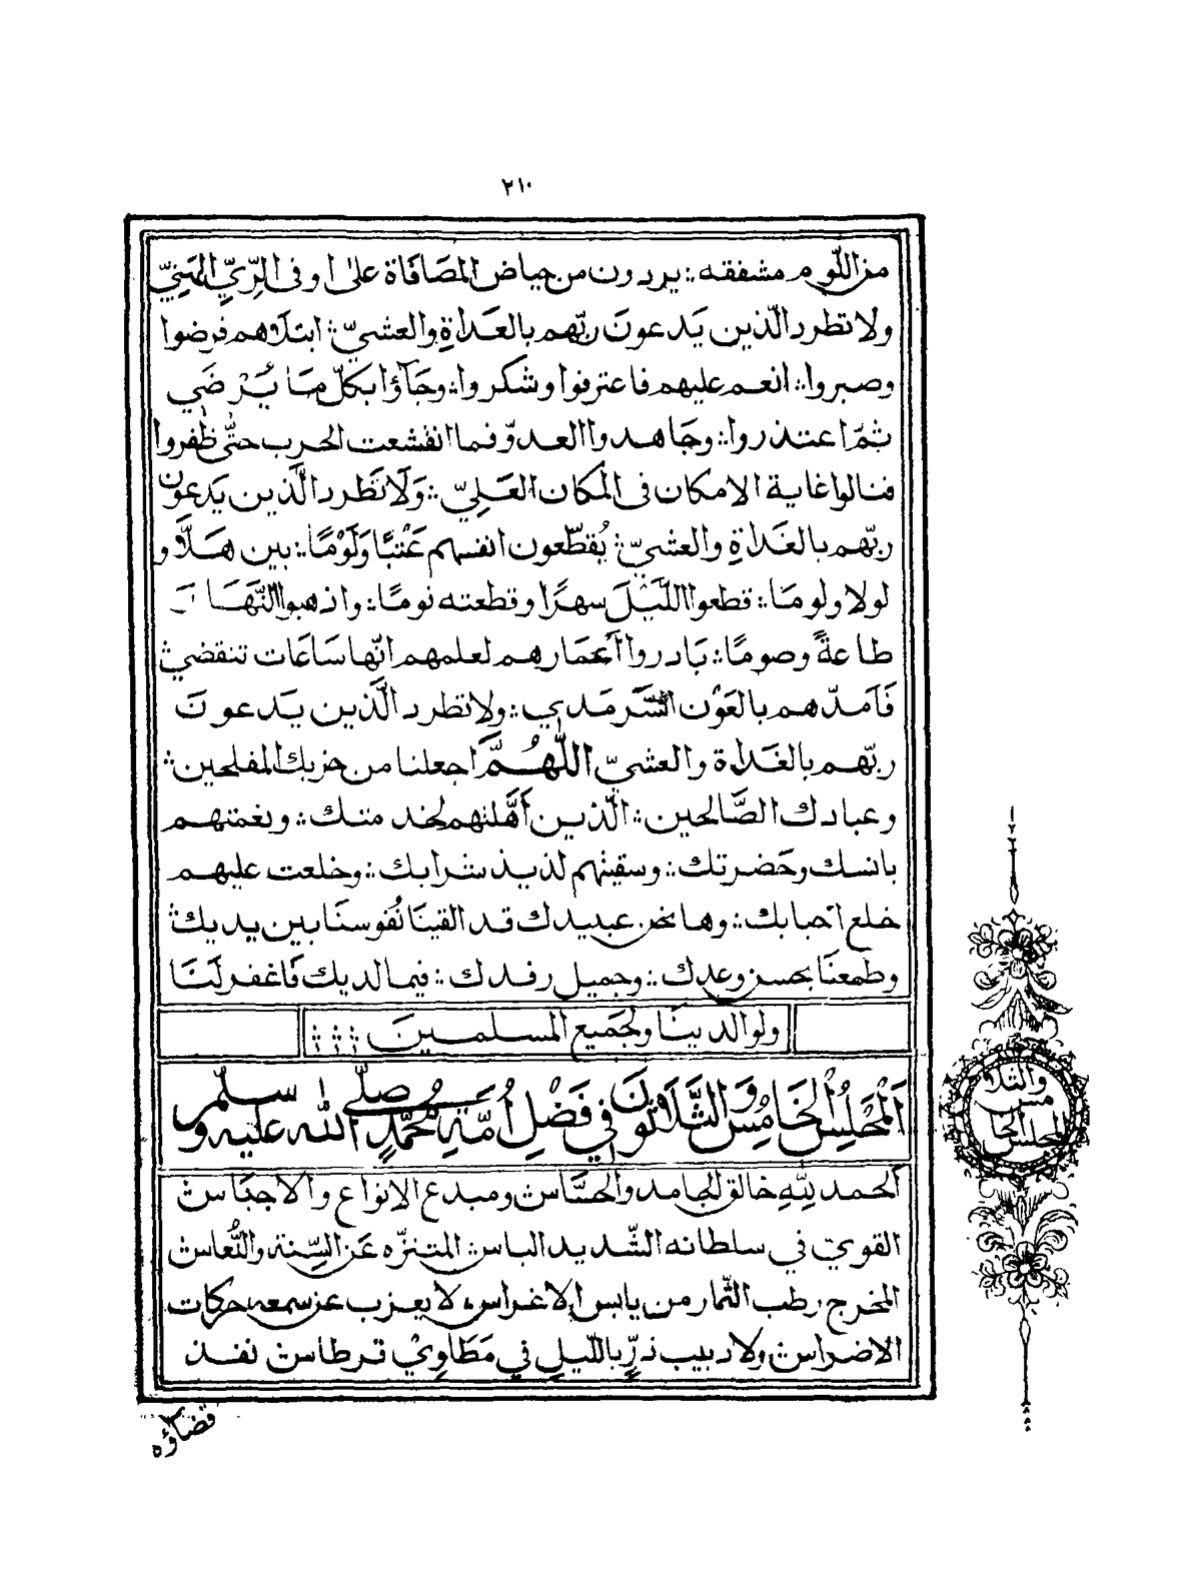 ٢١٠
من اللّوم مشفقه ؛ يردون من حياض المصَافَاة علىٰ اوفى الرِّيِّ الهَنِيِّ
ولا تطرد الّذين يَدعونَ ربّهم بالغَداةِ والعشيّ ؛ ابتلاهم فرضوا
وصبروا ؛ انعم عليهم فاعترفوا وشكروا ؛ وجَآؤا بكلّ مَا يُرْضَي
ثمّ اعتذروا ؛ وجَاهدوا العدوّ فما انقشعت الحرب حتّٰى ظفروا
فنالوا غاية الامكان فى المكان العَلِيّ ؛ وَلَا تَطرد الَّذين يَدعون
ربّهم بالغَداةِ والعشيّ ؛ يُقطّعون انفسهم عَتْبًا وَلَوْمًا ؛ بين هَلَّا و
لولا ولومَا ؛ قطعوا اللَّيْلَ سهرًا وقطعته نومًا ؛ واذهبوا النَّهَار
طاعةً وصومًا ؛ بَادروا أعمَارهم لعلمهم انّها سَاعَات تنقضي ؛
فَامدّهم بالعَوْن السَّرمَدي ؛ ولا تطرد الَّذين يَدعونَ
ربّهم بالغَداة والعشيّ اللّٰهُمَّ اجعلنا من حزبك المفلحين ؛
وعبادك الصَّالحين ؛ الّذين أهَّلتهم لخدمتك ؛ ونعمتهم
بانسك وحَضرتك ؛ وسقيتهم لذيذ شرابك ؛ وخلعت عليهم
خلع احبابك ؛ وها نحن عبيدك قد القينَا نُفوسنَا بين يديك ؛
وطمعنَا بحسن وعدك ؛ وجميل رفدك ؛ فيما لديك فَاغفر لَنَا
ولوالدينَا ولجَميع المسلمينَ ؛؛؛
اَلْمَجْلِسُ الْخَامِسُ وَالثَّلَاثُونَ فِي فَضْلِ اُمَّةِ مُحَمَّدٍ صلّى الله عليه وسلّم
الحمد لِلّٰهِ خالق الجامد والحسَّاس ؛ ومبدع الانواع والاجنَاس ؛
القوي في سلطانه الشّديد الباس ؛ المتنزّه عَن السِّنة والنُّعاس ؛
المخرج رطب الثّمار من يابس الاغراس ؛ لا يعزب عن سمعه حركات
الاضراس ؛ ولا دبيب ذرٍّ بالليلِ في مَطَاوِيْ قرطاس ؛ نفذ
قضاؤه
المجلس الخا
مس
والثلا